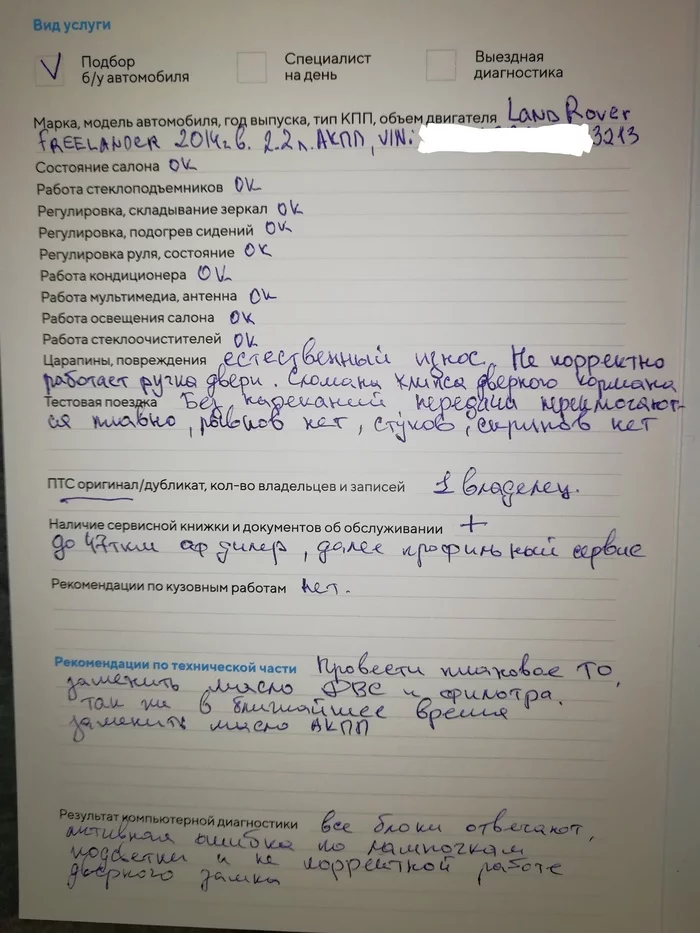 Вид услуги
V Подбор б/у автомобиля
Специалист на день
Выездная диагностика
Марка, модель автомобиля, год выпуска, тип КПП, объем двигателя Land Rover
FREELANDER 2014г.в. 2.2л. АКПП, VIN: 3213
Состояние салона ОК
Работа стеклоподъемников ОК
Регулировка, складывание зеркал ОК
Регулировка, подогрев сидений ОК
Регулировка руля, состояние ОК
Работа кондиционера ОК
Работа мультимедиа, антенна ОК
Работа освещения салона ОК
Работа стеклоочистителей ОК
Царапины, повреждения естественный износ. Не корректно
работает ручка двери. Сломана клипса дверного кармана
Тестовая поездка Без нареканий, передачи
плавно, рывков нет, стуков, скрипов нет
ПТС оригинал/дубликат, кол-во владельцев и записей 1 владелец.
Наличие сервисной книжки и документов об обслуживании +
до 47ткм оф дилер, далее профильный сервис
Рекомендации по кузовным работам Нет.
Рекомендации по технической части Провести плановое ТО,
заменить масло ДВС и фильтра.
так же в ближайшее время
заменить масло АКПП
Результат компьютерной диагностики все блоки отвечают,
активная ошибка по лампочкам
подсветки и не корректной работе
дверного замка